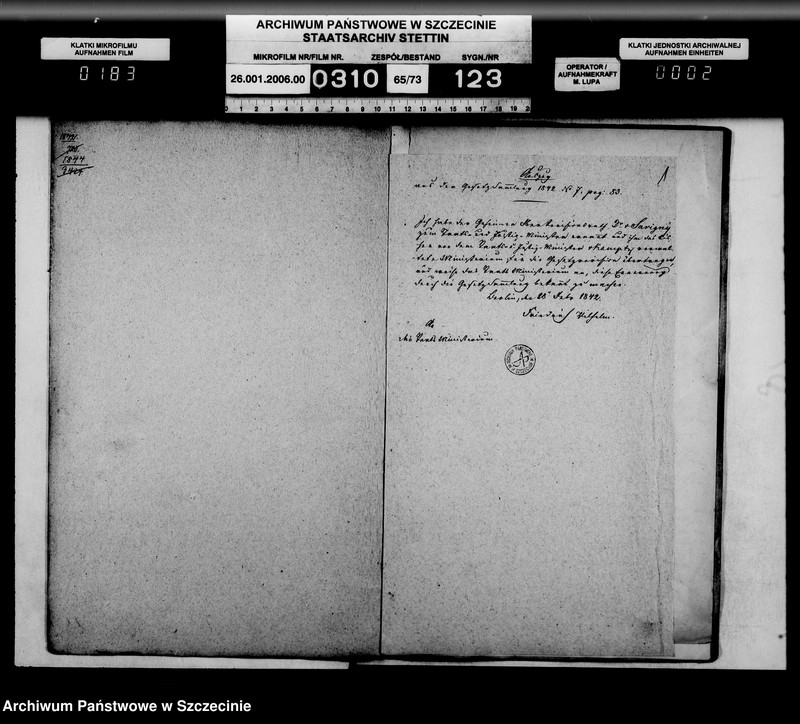 ARCHIWUM PAŃSTWOWE W SZCZECINIE
STAATSARCHIV STETTIN
KLATKI MIKROFILMU
AUFNAHMEN FILM
0183
MIKROFILM NR/FILM NR. ZESPÓŁ/BESTAND SYGN./NR
26.001.2006.00 0310 65/73 123
OPERATOR /
AUFNAHMEKRAFT
M. LUPA
KLATKI JEDNOSTKI ARCHIWALNEJ
AUFNAHMEN EINHEITEN
0002
0 1 2 3 4 5 6 7 8 9 10 11 12 13 14 15 16 17 18 19 20
1844
Auszug
aus der Gesetzsammlung 1842 No 7. pag: 83.
1
Ich habe den Geheimen Ober Revisionsrath Dr v Savigny
zum Staats- und Justiz-Minister ernannt und ihm das bis-
her von dem Staats- u Justiz-Minister v Kamptz verwal-
tete Ministerium für die Gesetzrevision übertragen,
und weise das Staats Ministerium an, diese Ernennung
durch die Gesetzsammlung bekannt zu machen.
Berlin, den 28 Febr 1842.
Friedrich Wilhelm.
An
das Staats Ministerium
Archiwum Państwowe w Szczecinie